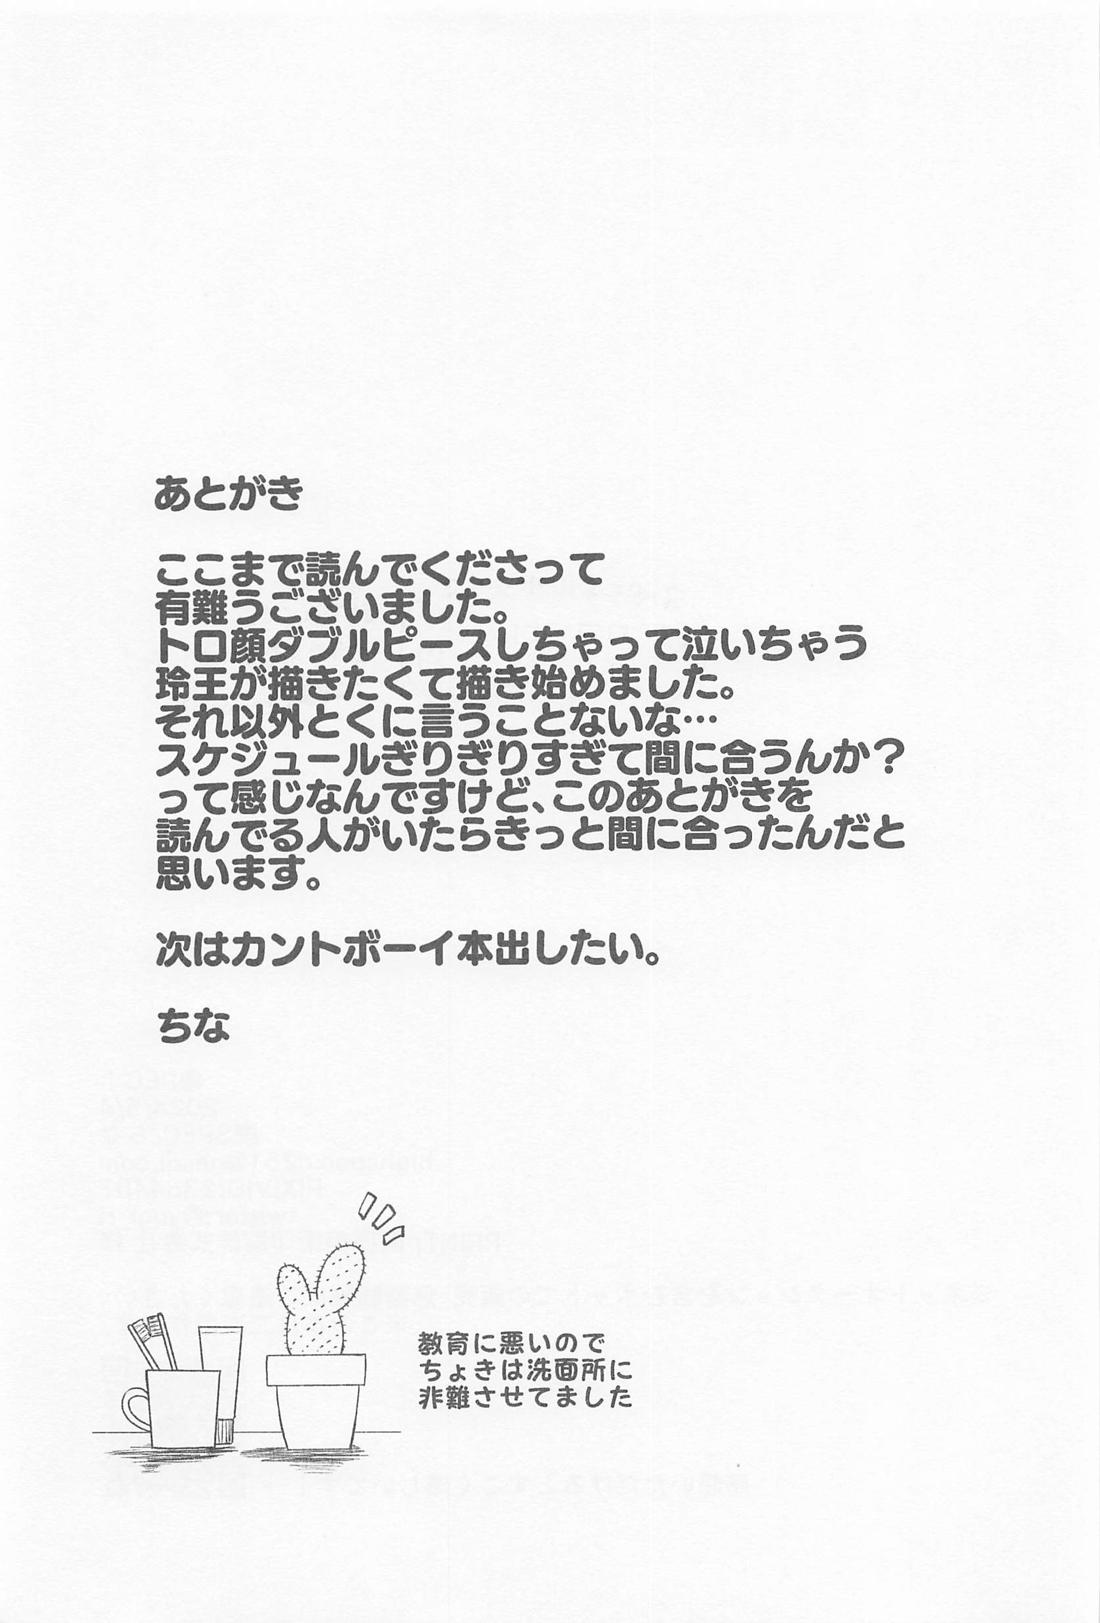 あとがき
ここまで読んでくださって
有難うございました。
トロ顔ダブルピースしちゃって泣いちゃう
玲王が描きたくて描き始めました。
それ以外とくに言うことないな…
スケジュールぎりぎりすぎて間に合うんか？
って感じなんですけど、このあとがきを
読んでる人がいたらきっと間に合ったんだと
思います。
次はカントボーイ本出したい。
ちな
教育に悪いので
ちょきは洗面所に
非難させてました